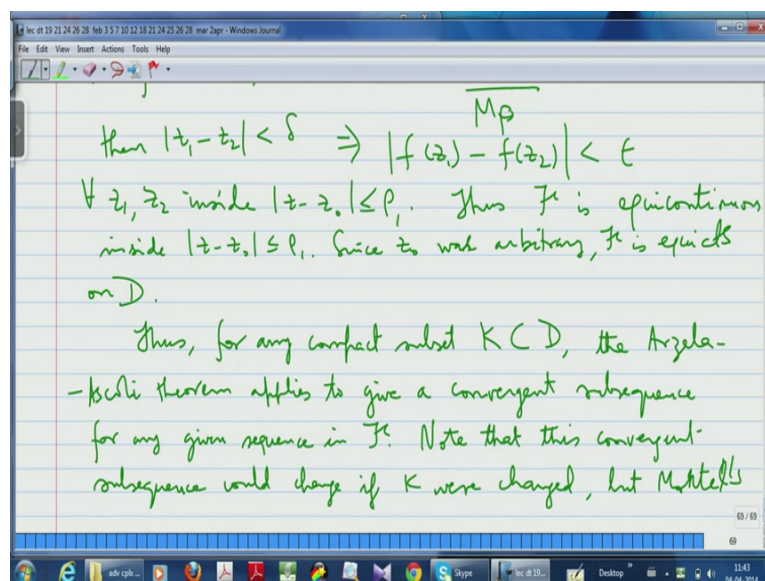 lec dt 19 21 24 26 28 feb 3 5 7 10 12 18 21 24 25 26 28 mar 2apr - Windows Journal
File Edit View Insert Actions Tools Help
Mρ
then |z₁ - z₂| < δ ⇒ |f(z₁) - f(z₂)| < ϵ
∀ z₁, z₂ inside |z - z₀| ≤ ρ₁. Thus ℱ is equicontinuous
inside |z - z₀| ≤ ρ₁. Since z₀ was arbitrary, ℱ is equicts
on D.
Thus, for any compact subset K ⊂ D, the Arzela-
-Ascoli theorem applies to give a convergent subsequence
for any given sequence in ℱ. Note that this convergent
subsequence would change if K were changed, but Montel's
69 / 69
69
adv cplx...
Skype
lec dt 19...
Desktop
11:43
04-04-2014